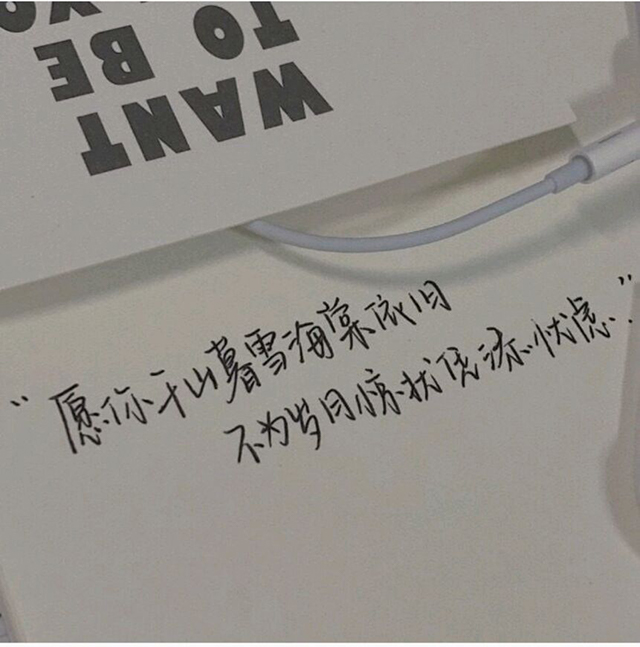 WANT
TO BE
YO
“愿你千山暮雪海棠依旧
不为岁月惊扰凭添忧虑.”